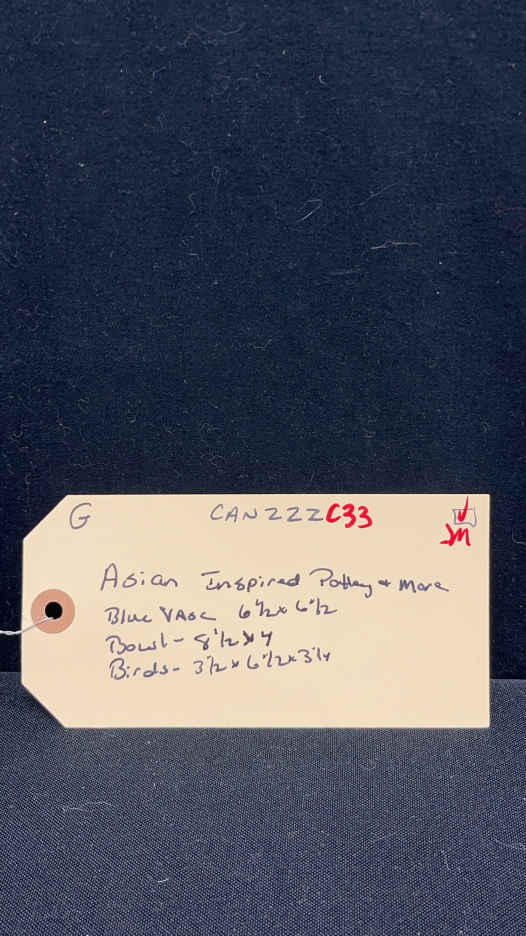 G CAN222C33
JM
Asian Inspired Pottery & More
Blue Vase 6 1/2 x 6 1/2
Bowl - 8 1/2 x 4
Birds - 3 1/2 x 6 1/2 x 3 1/4